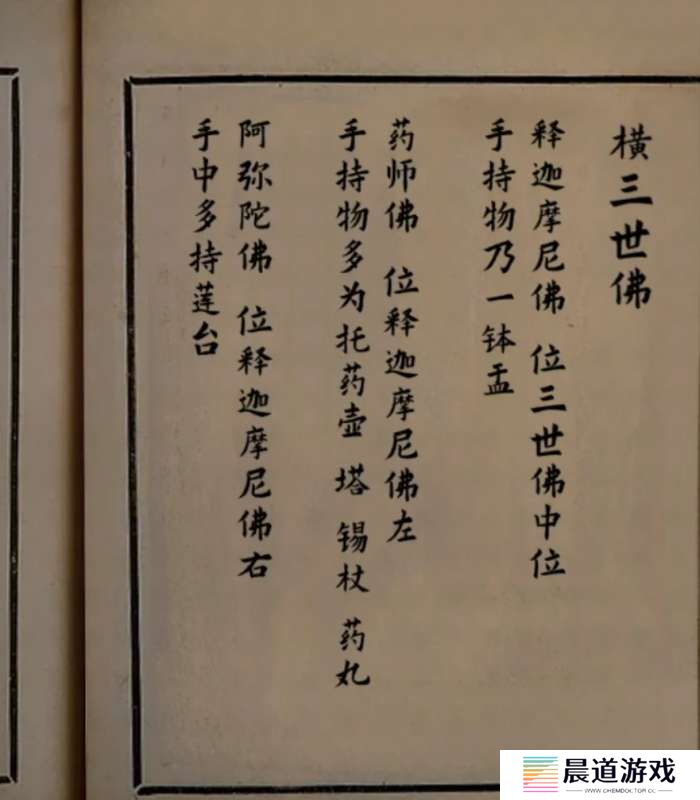 横三世佛
释迦摩尼佛 位三世佛中位
手持物乃一钵盂
药师佛 位释迦摩尼佛左
手持物多为托药壶 塔 锡杖 药丸
阿弥陀佛 位释迦摩尼佛右
手中多持莲台
晨道游戏
WWW.CHEMDOKTOR.CC